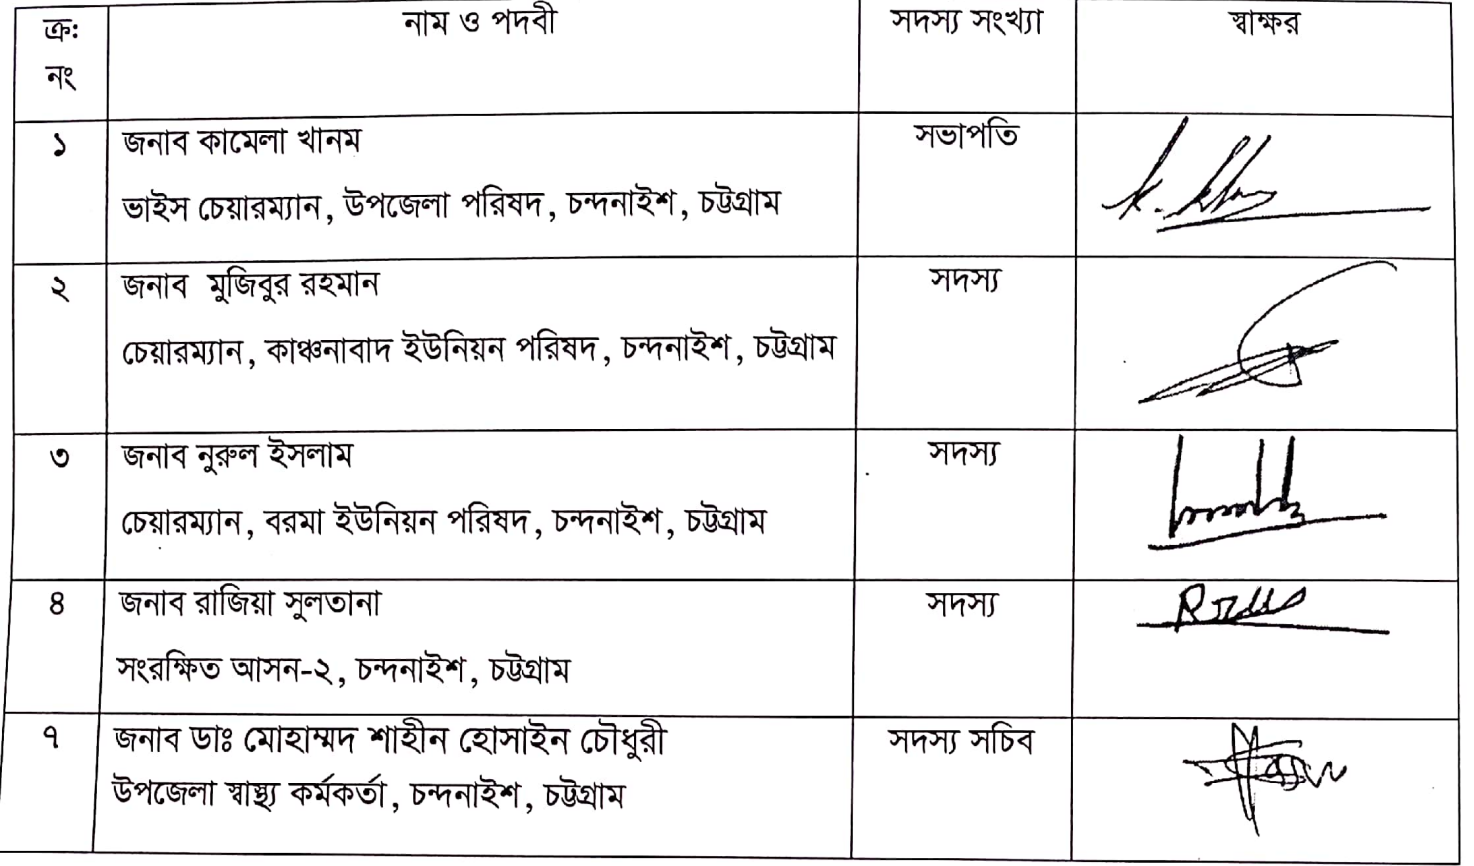 ক্রঃ নাম ও পদবী সদস্য সংখ্যা স্বাক্ষর
নং
১ জনাব কামেলা খানম সভাপতি
ভাইস চেয়ারম্যান, উপজেলা পরিষদ, চন্দনাইশ, চট্টগ্রাম
২ জনাব মুজিবুর রহমান সদস্য
চেয়ারম্যান, কাঞ্চনাবাদ ইউনিয়ন পরিষদ, চন্দনাইশ, চট্টগ্রাম
৩ জনাব নুরুল ইসলাম সদস্য
চেয়ারম্যান, বরমা ইউনিয়ন পরিষদ, চন্দনাইশ, চট্টগ্রাম
৪ জনাব রাজিয়া সুলতানা সদস্য
সংরক্ষিত আসন-২, চন্দনাইশ, চট্টগ্রাম
৭ জনাব ডাঃ মোহাম্মদ শাহীন হোসাইন চৌধুরী সদস্য সচিব
উপজেলা স্বাস্থ্য কর্মকর্তা, চন্দনাইশ, চট্টগ্রাম